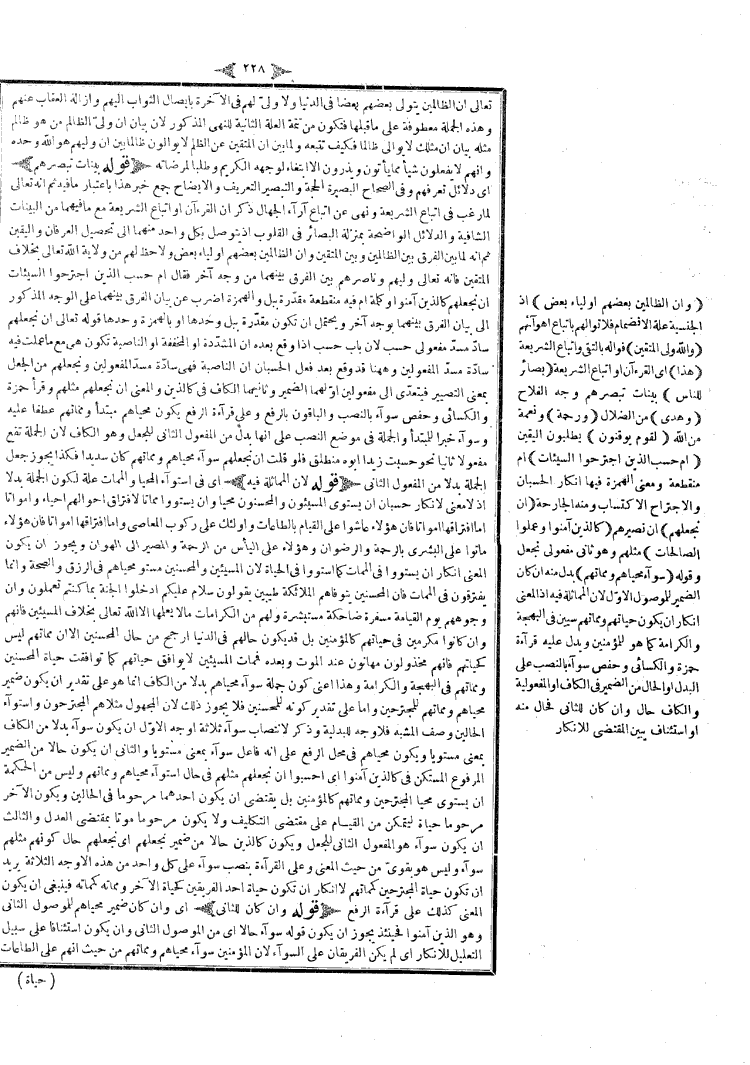 ﴿ ٢٢٨ ﴾
تعالى ان الظالمين يتولى بعضهم بعضا فى الدنيا ولا ولىّ لهم فى الآخرة بايصال الثواب اليهم وازالة العقاب عنهم
وهذه الجملة معطوفة على ماقبلها فتكون من تتمة العلة الثانية للنهى المذكور لان بيان ان ولىّ الظالم من هو ظالم
مثله بيان ان مثلك لايوالى ظالما فكيف تتبعه ولما بين ان المتقين عن الظلم لايوالون ظالما بين ان وليهم هو الله وحده
وانهم لايفعلون شيأ مما يأتون ويذرون الا ابتغاء لوجهه الكريم وطلبا لمرضاته ﴿ قوله بينات تبصرهم ﴾
اى دلائل تعرفهم وفى الصحاح البصيرة الحجة والتبصير التعريف والايضاح جمع خبر هذا باعتبار مافيه ثم انه تعالى
لما رغب فى اتباع الشريعة ونهى عن اتباع آراء الجهال ذكر ان القرءآن او اتباع الشريعة مع مافيهما من البينات
الشافية والدلائل الواضحة بمنزلة البصائر فى القلوب اذ يتوصل بكل واحد منهما الى تحصيل العرفان واليقين
ثم انه لما بين الفرق بين الظالمين وبين المتقين وان الظالمين بعضهم اولياء بعض ولاحظ لهم من ولاية الله تعالى بخلاف
المتقين فانه تعالى وليهم وناصرهم بين الفرق بينهما من وجه آخر فقال ام حسب الذين اجترحوا السيئات
ان نجعلهم كالذين آمنوا وكلمة ام فيه منقطعة مقدّرة ببل والهمزة اضرب عن بيان الفرق بينهما على الوجه المذكور
الى بيان الفرق بينهما بوجه آخر ويحتمل ان تكون مقدّرة ببل وحدها او بالهمزة وحدها قوله تعالى ان نجعلهم
سادّ مسدّ مفعولى حسب لان باب حسب اذا وقع بعده ان المشدّدة او المخففة او الناصبة تكون هى مع ماعملت فيه
سادّة مسدّ المفعولين وههنا قد وقع بعد فعل الحسبان ان الناصبة فهى سادّة مسدّ المفعولين ونجعلهم من الجعل
بمعنى التصيير فيتعدّى الى مفعولين اوّلهما الضمير وثانيهما الكاف فى كالذين والمعنى ان نجعلهم مثلهم وقرأ حمزة
والكسائى وحفص سوآء بالنصب والباقون بالرفع وعلى قرآءة الرفع يكون محياهم مبتدأ ومماتهم عطفا عليه
وسوآء خبرا للمبتدأ والجملة فى موضع النصب على انها بدل من المفعول الثانى للجعل وهو الكاف لان الجملة تقع
مفعولا ثانيا نحو حسبت زيدا ابوه منطلق فلو قلت ان نجعلهم سوآء محياهم ومماتهم كان سديدا فكذا يجوز جعل
الجملة بدلا من المفعول الثانى ﴿ قوله لان المماثلة فيه ﴾ اى فى استوآء المحيا والممات علة لكون الجملة بدلا
اذ لامعنى لانكار حسبان ان يستوى المسيئون والمحسنون محيا وان يستووا مماتا لافتراق احوالهم احياء وامواتا
اما افتراقها احوالا فان هؤلاء عاشوا على القيام بالطاعات واولئك على ركوب المعاصى واما افتراقها امواتا فان هؤلاء
ماتوا على البشرى بالرحمة والرضوان وهؤلاء على اليأس من الرحمة والمصير الى الهوان ويجوز ان يكون
المعنى انكار ان يستووا فى الممات كما استووا فى الحياة لان المسيئين والمحسنين مستو محياهم فى الرزق والصحة وانما
يفترقون فى الممات فان المحسنين يتوفاهم الملائكة طيبين يقولون سلام عليكم ادخلوا الجنة بما كنتم تعملون وان
وجوههم يوم القيامة مسفرة ضاحكة مستبشرة ولهم من الكرامات مالا يعلمها الا الله تعالى بخلاف المسيئين فانهم
وان كانوا مكرمين فى حياتهم كالمؤمنين بل قد يكون حالهم فى الدنيا ارجح من حال المحسنين الا ان مماتهم ليس
كحياتهم فانهم مخذولون مهانون عند الموت وبعده فممات المسيئين لايوافق حياتهم كما توافقت حياة المحسنين
ومماتهم فى البهجة والكرامة وهذا اعنى كون جملة سوآء محياهم بدلا من الكاف انما هو على تقدير ان يكون ضمير
محياهم ومماتهم للمجترحين واما على تقدير كونه للمحسنين فلا يجوز ذلك لان المجهول مثلاهم المجترحون واستوآء
الحالين وصف المشبه فلاوجه للبدلية وذكر لانتصاب سوآء ثلاثة اوجه الاوّل ان يكون سوآء بدلا من الكاف
بمعنى مستويا ويكون محياهم فى محل الرفع على انه فاعل سوآء بمعنى مستويا والثانى ان يكون حالا من الضمير
المرفوع المستكن فى كالذين آمنوا اى احسبوا ان نجعلهم مثلهم فى حال استوآء محياهم ومماتهم وليس من الحكمة
ان يستوى محيا المجترحين ومماتهم كالمؤمنين بل يقتضى ان يكون احدهما مرحوما فى الحالين ويكون الآخر
مرحوما حياة ليتمكن من القيام على مقتضى التكليف ولا يكون مرحوما موتا بمقتضى العدل والثالث
ان يكون سوآء هو المفعول الثانى للجعل ويكون كالذين حالا من ضمير نجعلهم اى نجعلهم حال كونهم مثلهم
سوآء وليس هو بقوىّ من حيث المعنى وعلى القرآءة بنصب سوآء على كل واحد من هذه الاوجه الثلاثة يريد
ان تكون حياة المجترحين كمماتهم لا انكار ان تكون حياة احد الفريقين كحياة الآخر ومماته كمماته فينبغى ان يكون
المعنى كذلك على قرآءة الرفع ﴿ قوله وان كان للثانى ﴾ اى وان كان ضمير محياهم للموصول الثانى
وهو الذين آمنوا فحينئذ يجوز ان يكون قوله سوآء حالا اى من الموصول الثانى وان يكون استئنافا على سبيل
التعليل للانكار اى لم يكن الفريقان على السوآء لان المؤمنين سوآء محياهم ومماتهم من حيث انهم على الطاعات
( حياة )
( وان الظالمين بعضهم اولياء بعض ) اذ
الجنسية علة الانضمام فلا توالهم باتباع اهوآئهم
( والله ولى المتقين ) فواله بالتقى واتباع الشريعة
( هذا ) اى القرءآن او اتباع الشريعة ( بصائر
للناس ) بينات تبصرهم وجه الفلاح
( وهدى ) من الضلال ( ورحمة ) ونعمة
من الله ( لقوم يوقنون ) يطلبون اليقين
( ام حسب الذين اجترحوا السيئات ) ام
منقطعة ومعنى الهمزة فيها انكار الحسبان
والاجتراح الاكتساب ومنه الجارحة ( ان
نجعلهم ) ان نصيرهم ( كالذين آمنوا وعملوا
الصالحات ) مثلهم وهو ثانى مفعولى نجعل
وقوله ( سوآء محياهم ومماتهم ) بدل منه ان كان
الضمير للموصول الاوّل لان المماثلة فيه اذ المعنى
انكار ان يكون حياتهم ومماتهم سيين فى البهجة
والكرامة كما هو للمؤمنين ويدل عليه قرآءة
حمزة والكسائى وحفص سوآء بالنصب على
البدل او الحال من الضمير فى الكاف او المفعولية
والكاف حال وان كان للثانى فحال منه
او استئناف يبين المقتضى للانكار